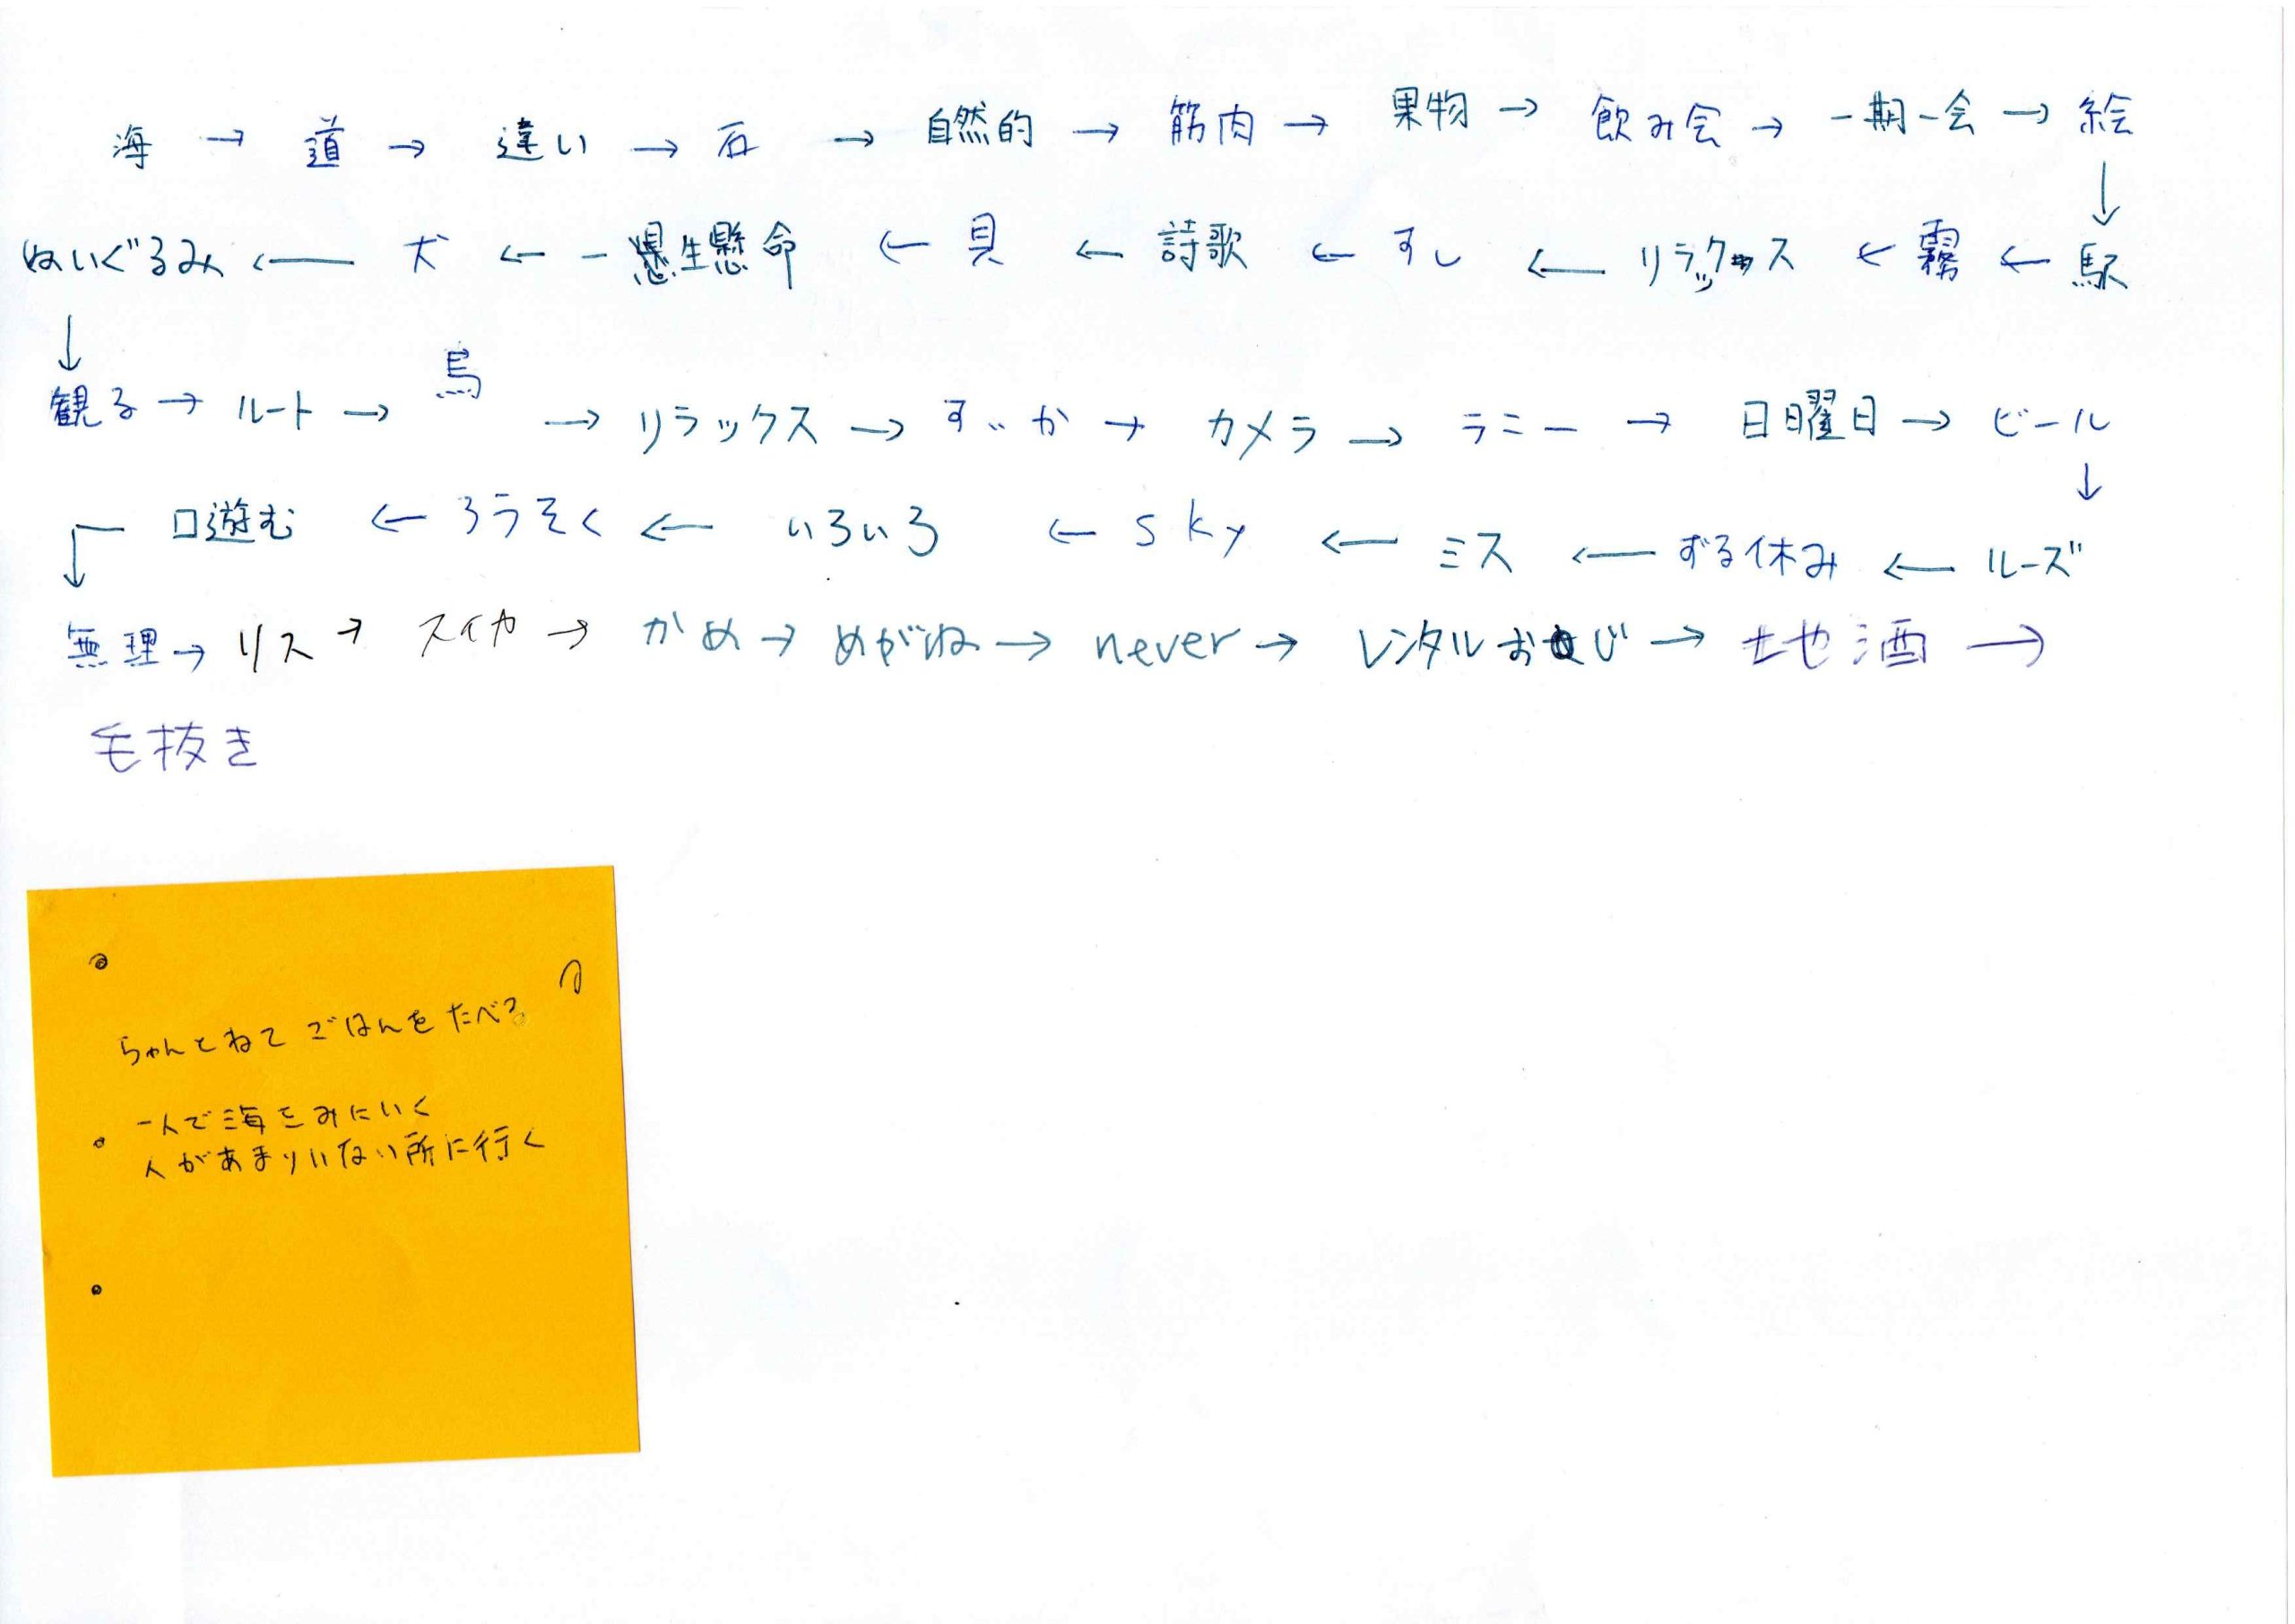 海 → 道 → 違い → 石 → 自然的 → 筋肉 → 果物 → 飲み会 → 一期一会 → 絵
↓
ぬいぐるみ ← 犬 ← 一懸生懸命 ← 貝 ← 詩歌 ← すし ← リラックス ← 霧 ← 駅
↓
観る → ルート → 鳥 → リラックス → すいか → カメラ → ラミー → 日曜日 → ビール
↓
口遊む ← ろうそく ← いろいろ ← sky ← ミス ← ずる休み ← ルーズ
↓
無理 → リス → スイカ → かめ → めがね → never → レンタルおじ → 地酒 →
毛抜き
ちゃんとねて ごはんを たべる
一人で海をみにいく
人があまりいない所に行く